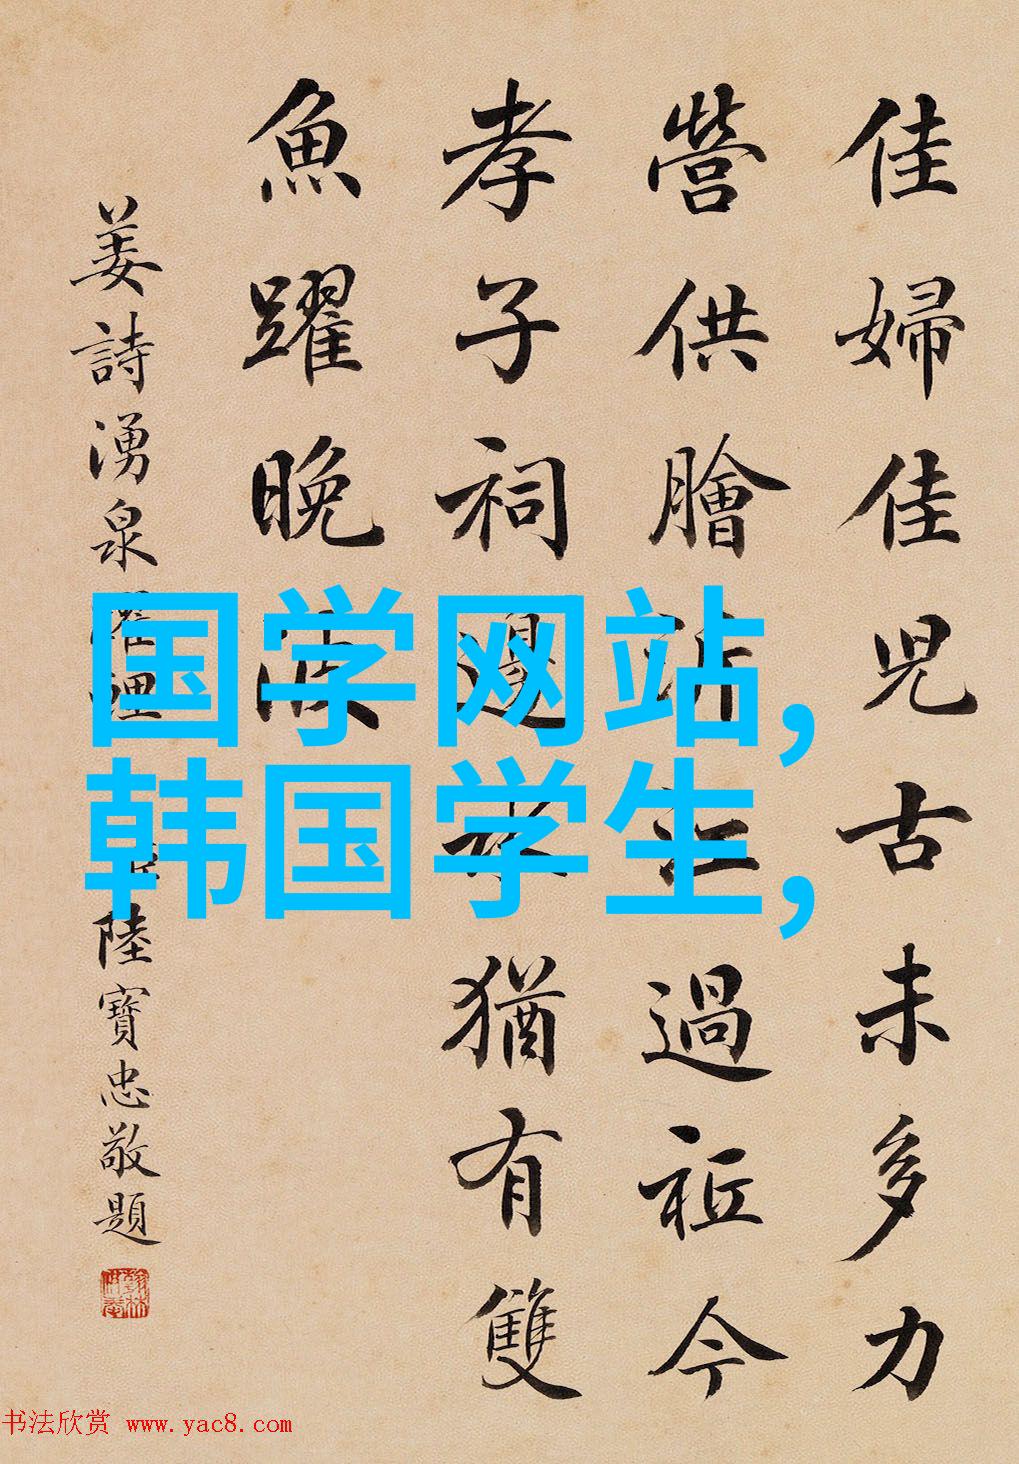 佳婦佳児古未多力
營供膾過今
孝子祠邊水猶有雙
魚躍晚波
姜詩湧泉躍鯉陸寶忠敬題
国学网站,
韩国学生,
书法欣赏 www.yac8.com